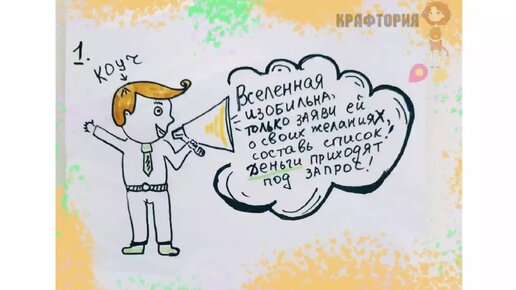 КРАФТОРИЯ
1.
КОУЧ
Вселенная
изобильна,
только заяви ей
о своих желаниях,
составь список!
Деньги приходят
под запрос!